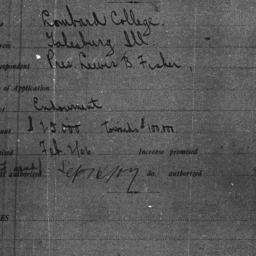 Lombard College.
Galesburg Ill
Pres. Lewis B. Fisher,
of Application
Endowment
$25,000 Towards $100,000
Feb 2/06 Increase promised
authorized Sep 16/07 do. authorized